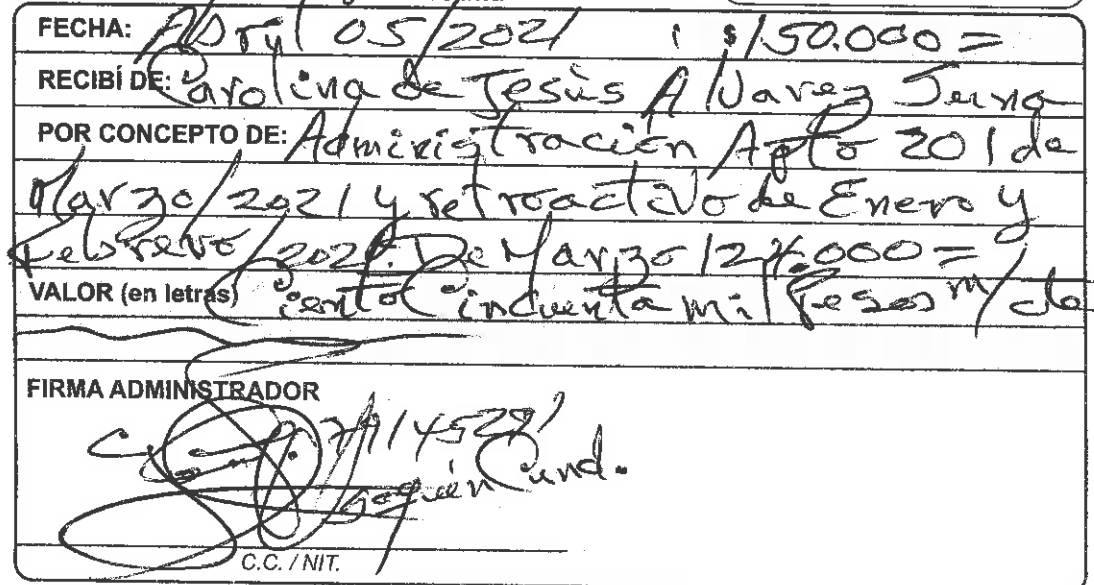 FECHA: Abryl 05/2021 $150.000=
RECIBÍ DE: Carolina de Jesùs Alvarez
POR CONCEPTO DE: Administración Apto 201 de
Marzo/2021 y retroactivo de Enero y
Febrero/2021. De Marzo
VALOR (en letras) Ciento Cincuenta mil Pesos m/cte
FIRMA ADMINISTRADOR
Cund.
C.C. / NIT.